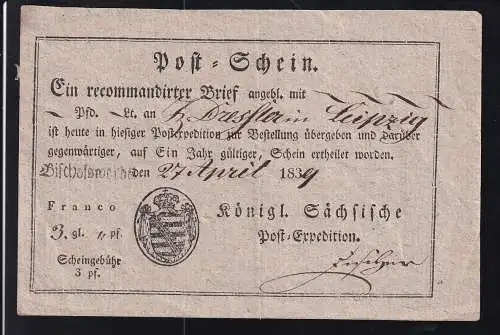 Post-Schein.
Ein recommandirter Brief angebl. mit
Pfd. Lt. an in Leipzig
ist heute in hiesiger Postexpedition zur Bestellung übergeben und darüber
gegenwärtiger, auf Ein Jahr gültiger, Schein ertheilet worden.
Bischofswerda den 27 April 1839
Franco
3. gl. pf.
Königl. Sächsische
Post-Expedition.
Scheingebühr
3 pf.